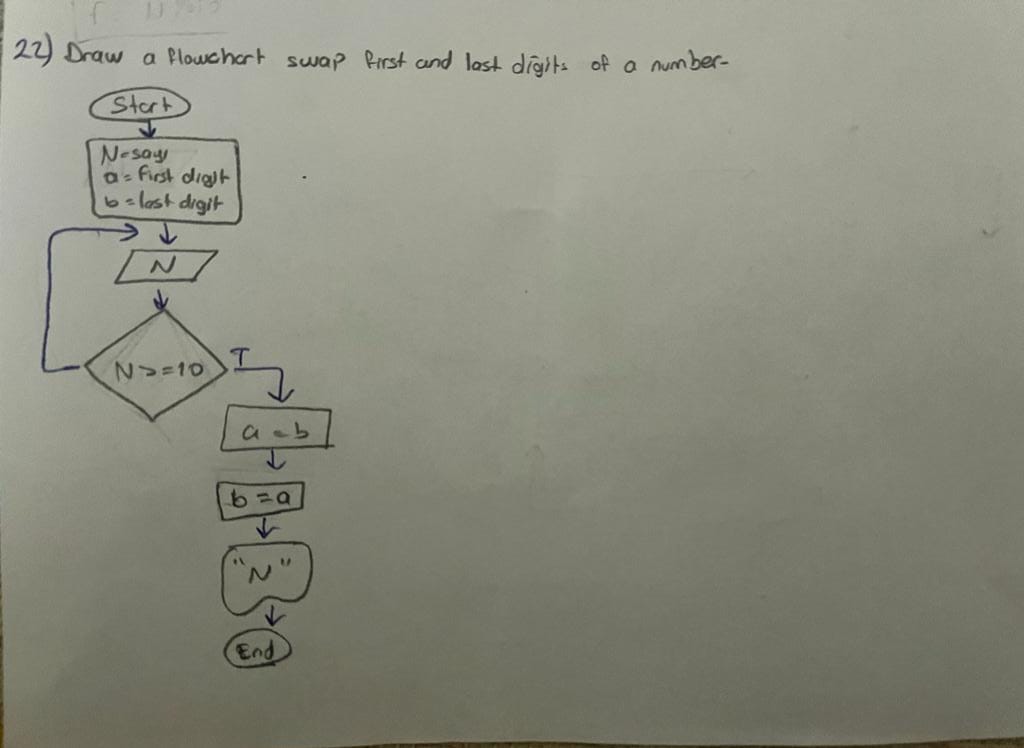 22) Draw a flowchart swap first and last digits of a number-
Start
N=sayı
a = first digit
b = last digit
N
N>=10
T
a = b
b = a
"N"
End